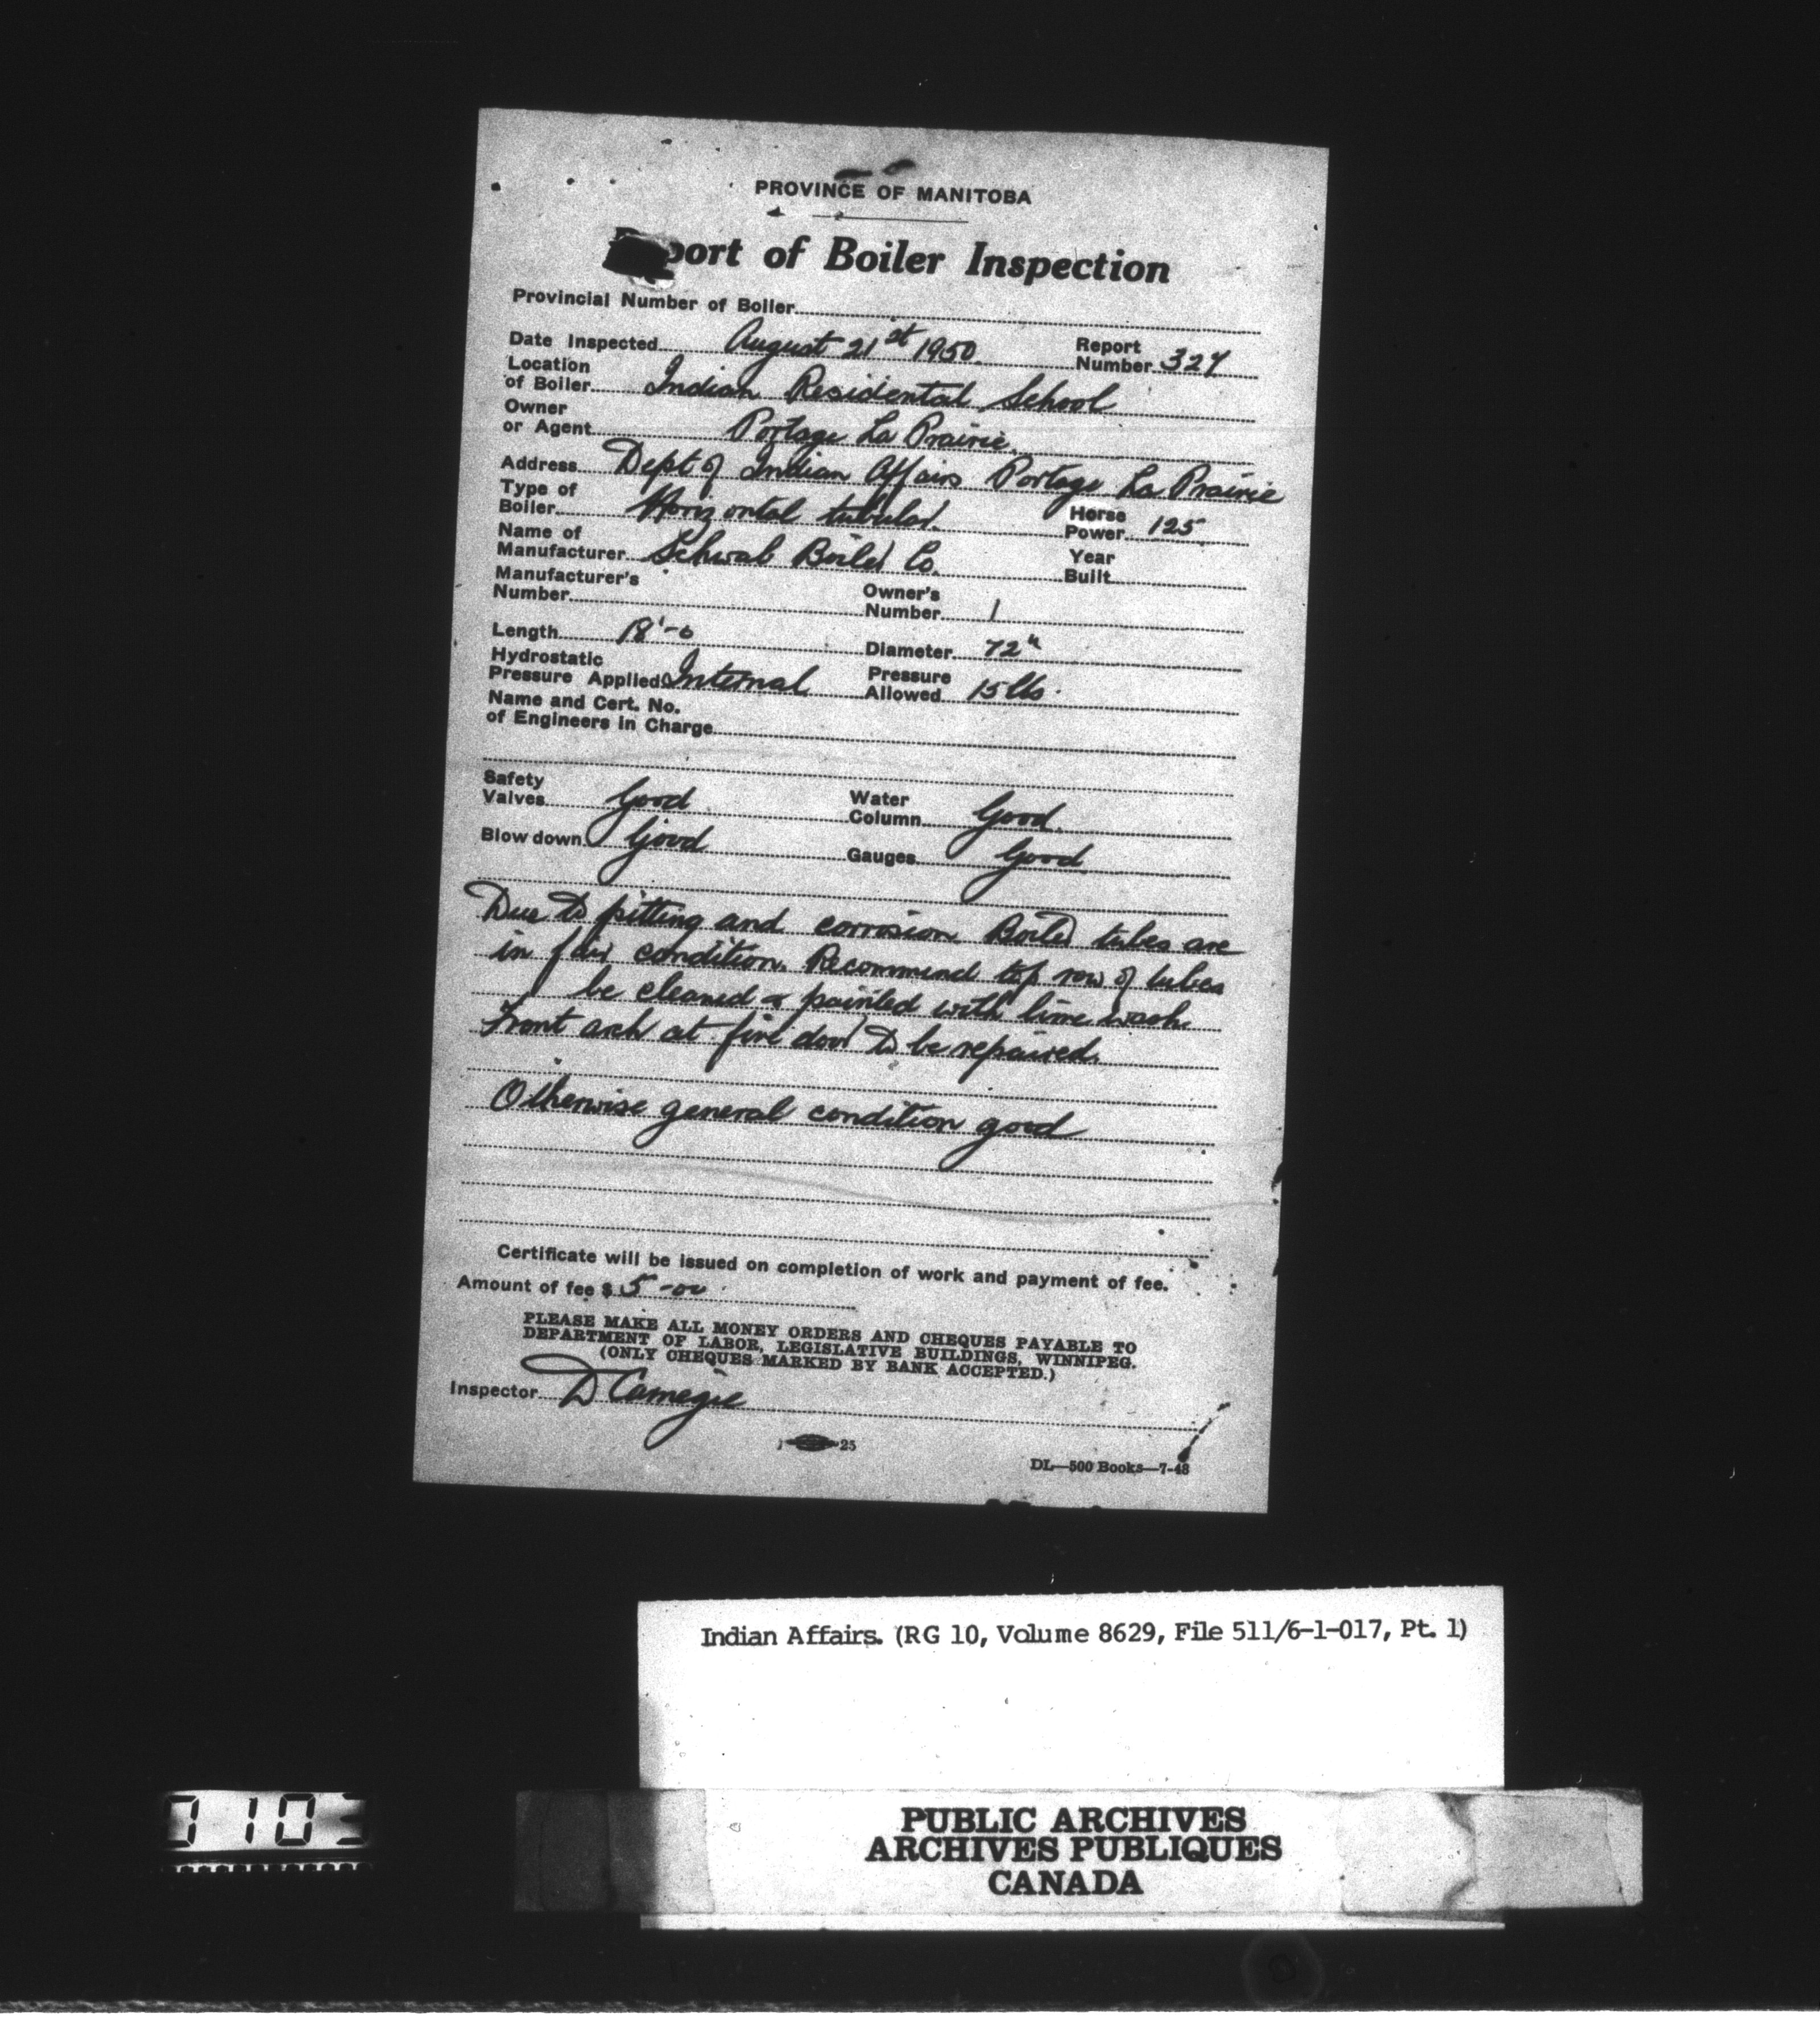 PROVINCE OF MANITOBA
Report of Boiler Inspection
Provincial Number of Boiler
Date Inspected August 21st 1950 Report Number 327
Location of Boiler Indian Residential School
Owner or Agent Portage La Prairie
Address Dept of Indian Affairs Portage La Prairie
Type of Boiler Horizontal tubular Horse Power 125
Name of Manufacturer Schwab Boiler Co. Year Built
Manufacturer's Number Owner's Number 1
Length 18'-0 Diameter 72"
Hydrostatic Pressure Applied Internal Pressure Allowed 15 lbs.
Name and Cert. No. of Engineers in Charge
Safety Valves Good Water Column Good.
Blow down Good Gauges Good
Due to pitting and corrosion Boiler tubes are
in fair condition. Recommend top row of tubes
be cleaned & painted with lime wash.
Front arch at fire door to be repaired.
Otherwise general condition good
Certificate will be issued on completion of work and payment of fee.
Amount of fee $ 5-00
PLEASE MAKE ALL MONEY ORDERS AND CHEQUES PAYABLE TO
DEPARTMENT OF LABOR, LEGISLATIVE BUILDINGS, WINNIPEG.
(ONLY CHEQUES MARKED BY BANK ACCEPTED.)
Inspector D Carnegie
25
DL—500 Books—7-48
Indian Affairs. (RG 10, Volume 8629, File 511/6-1-017, Pt. 1)
PUBLIC ARCHIVES
ARCHIVES PUBLIQUES
CANADA